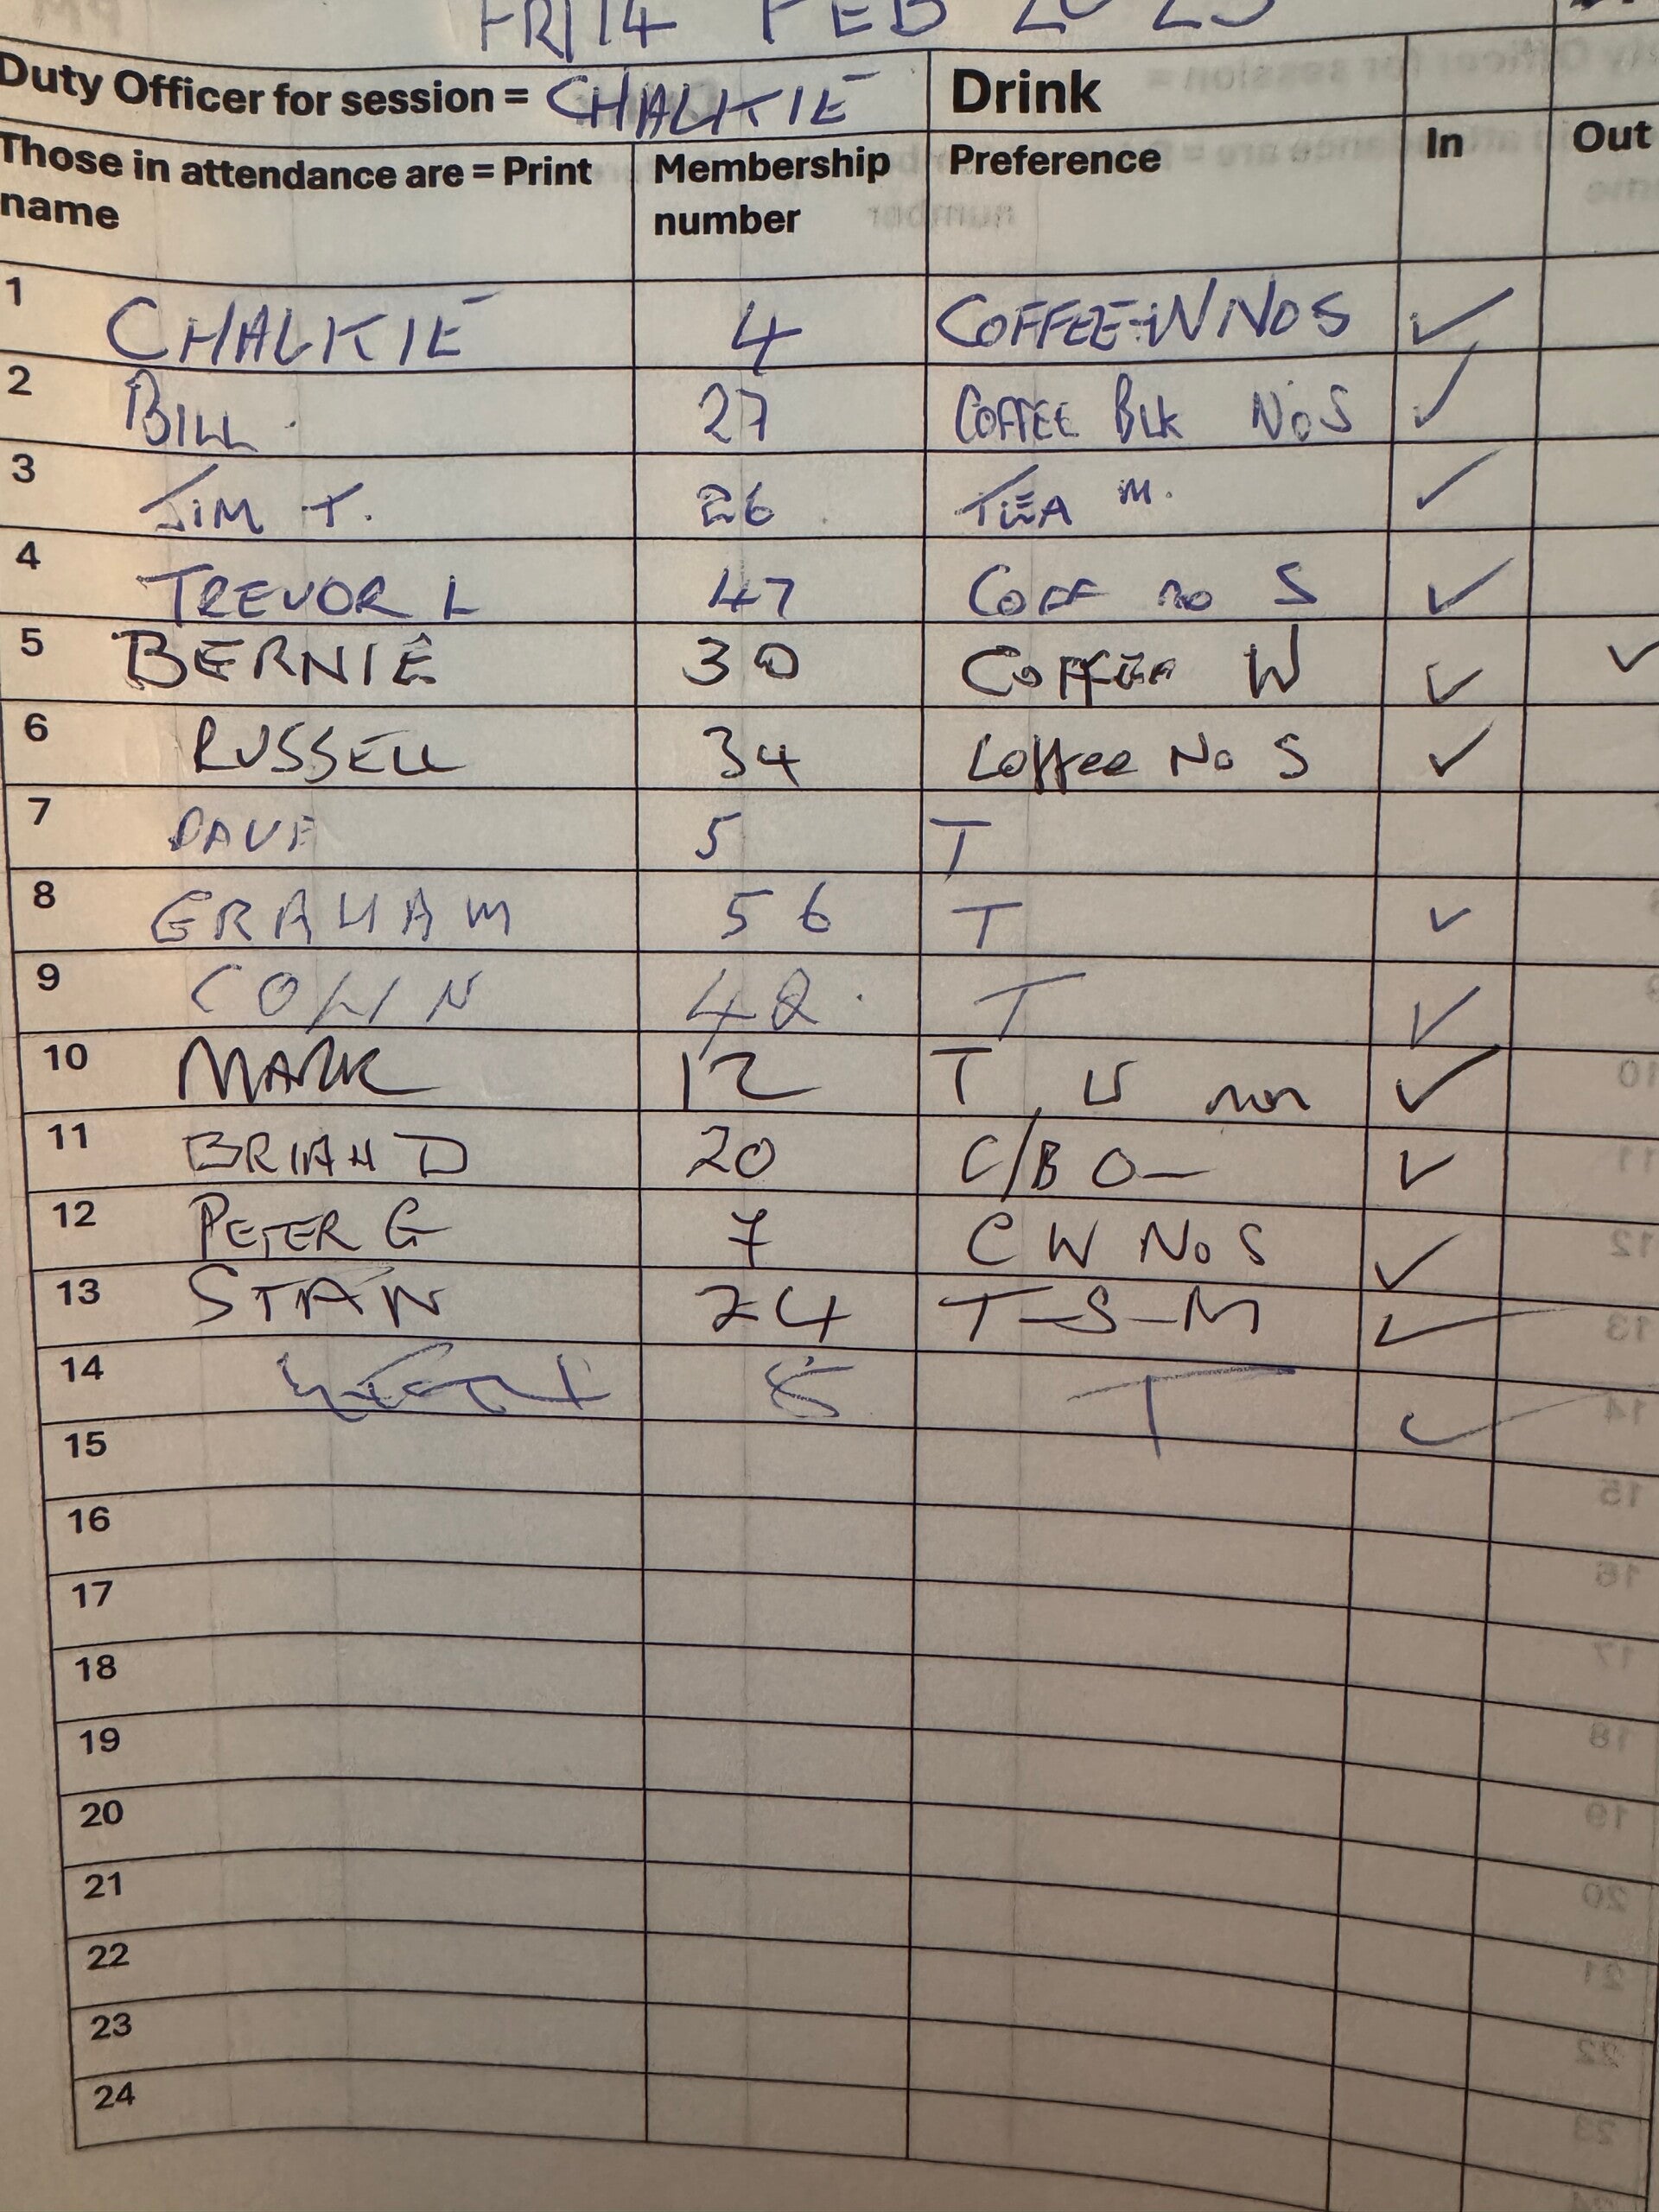 FRI 14 FEB 2025
Duty Officer for session = CHALKIE Drink
Those in attendance are = Print name Membership number Preference In Out
1 CHALKIE 4 COFFEE-W NO S ✓
2 BILL 27 COFFEE BLK NO S ✓
3 JIM T. 26 TEA M. ✓
4 TREVOR L 47 COFF no S ✓
5 BERNIE 30 COFFEE W ✓ ✓
6 RUSSELL 34 Coffee No S ✓
7 DAVE 5 T
8 GRAHAM 56 T ✓
9 COLIN 48 T ✓
10 MARK 12 T ✓
11 BRIAN D 20 C/B O— ✓
12 PETER G 7 C W No S ✓
13 STAN 24 T-S-M ✓
14 8 T ✓
15
16
17
18
19
20
21
22
23
24